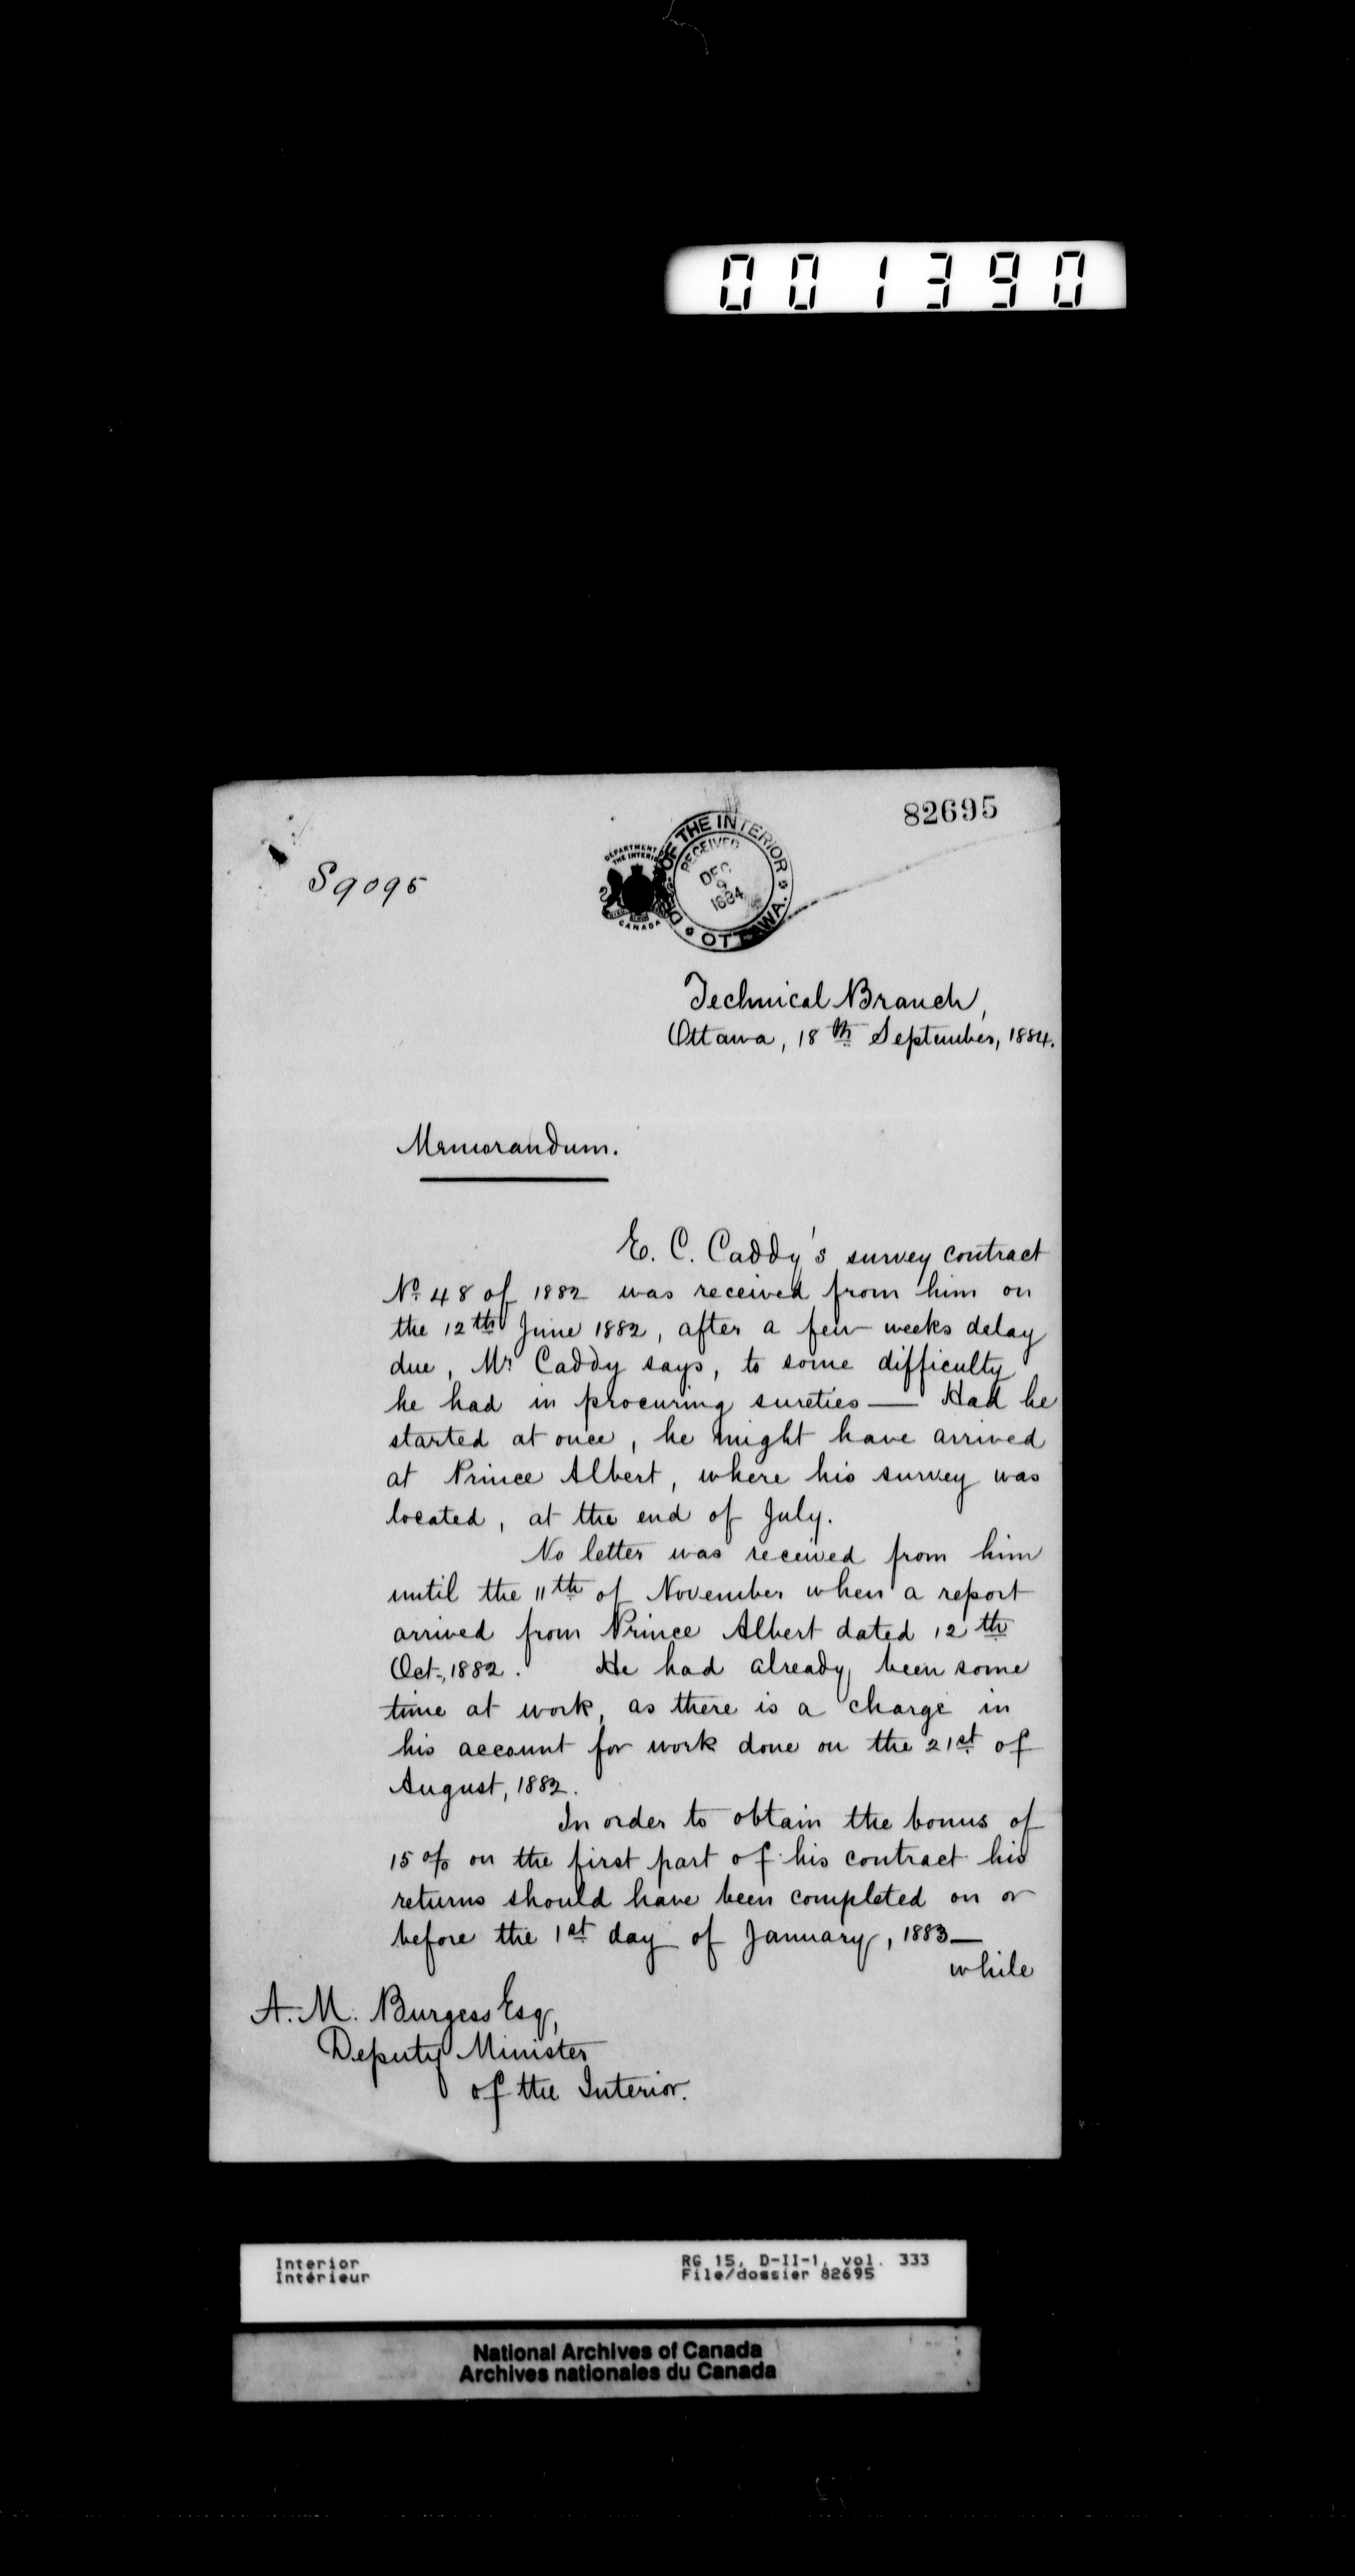 001390
82695
S9095
DEPARTMENT OF THE INTERIOR
CANADA
DEPT. OF THE INTERIOR
RECEIVED
DEC
9
1884
OTTAWA.
Technical Branch,
Ottawa, 18th September, 1884.
Memorandum.
E. C. Caddy's survey contract
No. 48 of 1882 was received from him on
the 12th June 1882, after a few weeks delay
due, Mr Caddy says, to some difficulty
he had in procuring sureties — Had he
started at once, he might have arrived
at Prince Albert, where his survey was
located, at the end of July.
No letter was received from him
until the 11th of November when a report
arrived from Prince Albert dated 12th
Oct., 1882. He had already been some
time at work, as there is a charge in
his account for work done on the 21st of
August, 1882.
In order to obtain the bonus of
15 % on the first part of his contract his
returns should have been completed on or
before the 1st day of January, 1883 —
while
A. M. Burgess Esq,
Deputy Minister
of the Interior.
Interior RG 15, D-II-1, vol. 333
Intérieur File/dossier 82695
National Archives of Canada
Archives nationales du Canada